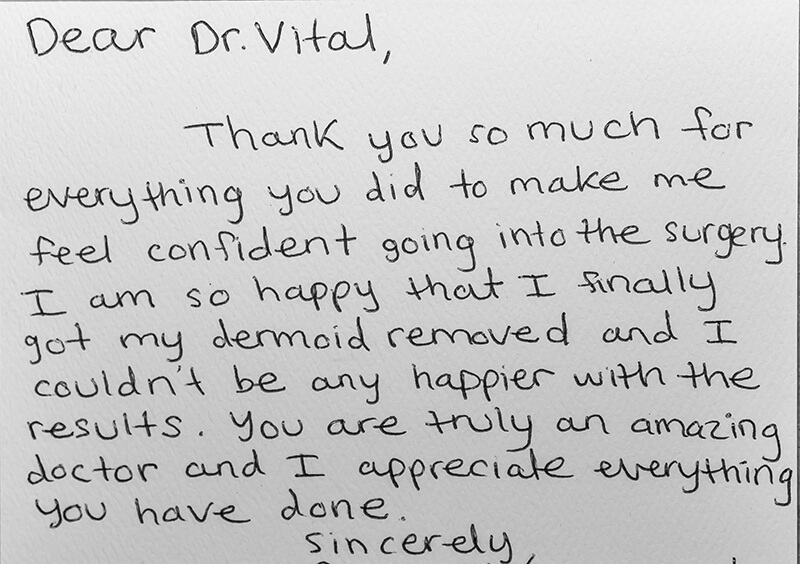 Dear Dr. Vital,
Thank you so much for
everything you did to make me
feel confident going into the surgery.
I am so happy that I finally
got my dermoid removed and I
couldn't be any happier with the
results. You are truly an amazing
doctor and I appreciate everything
you have done.
Sincerely,